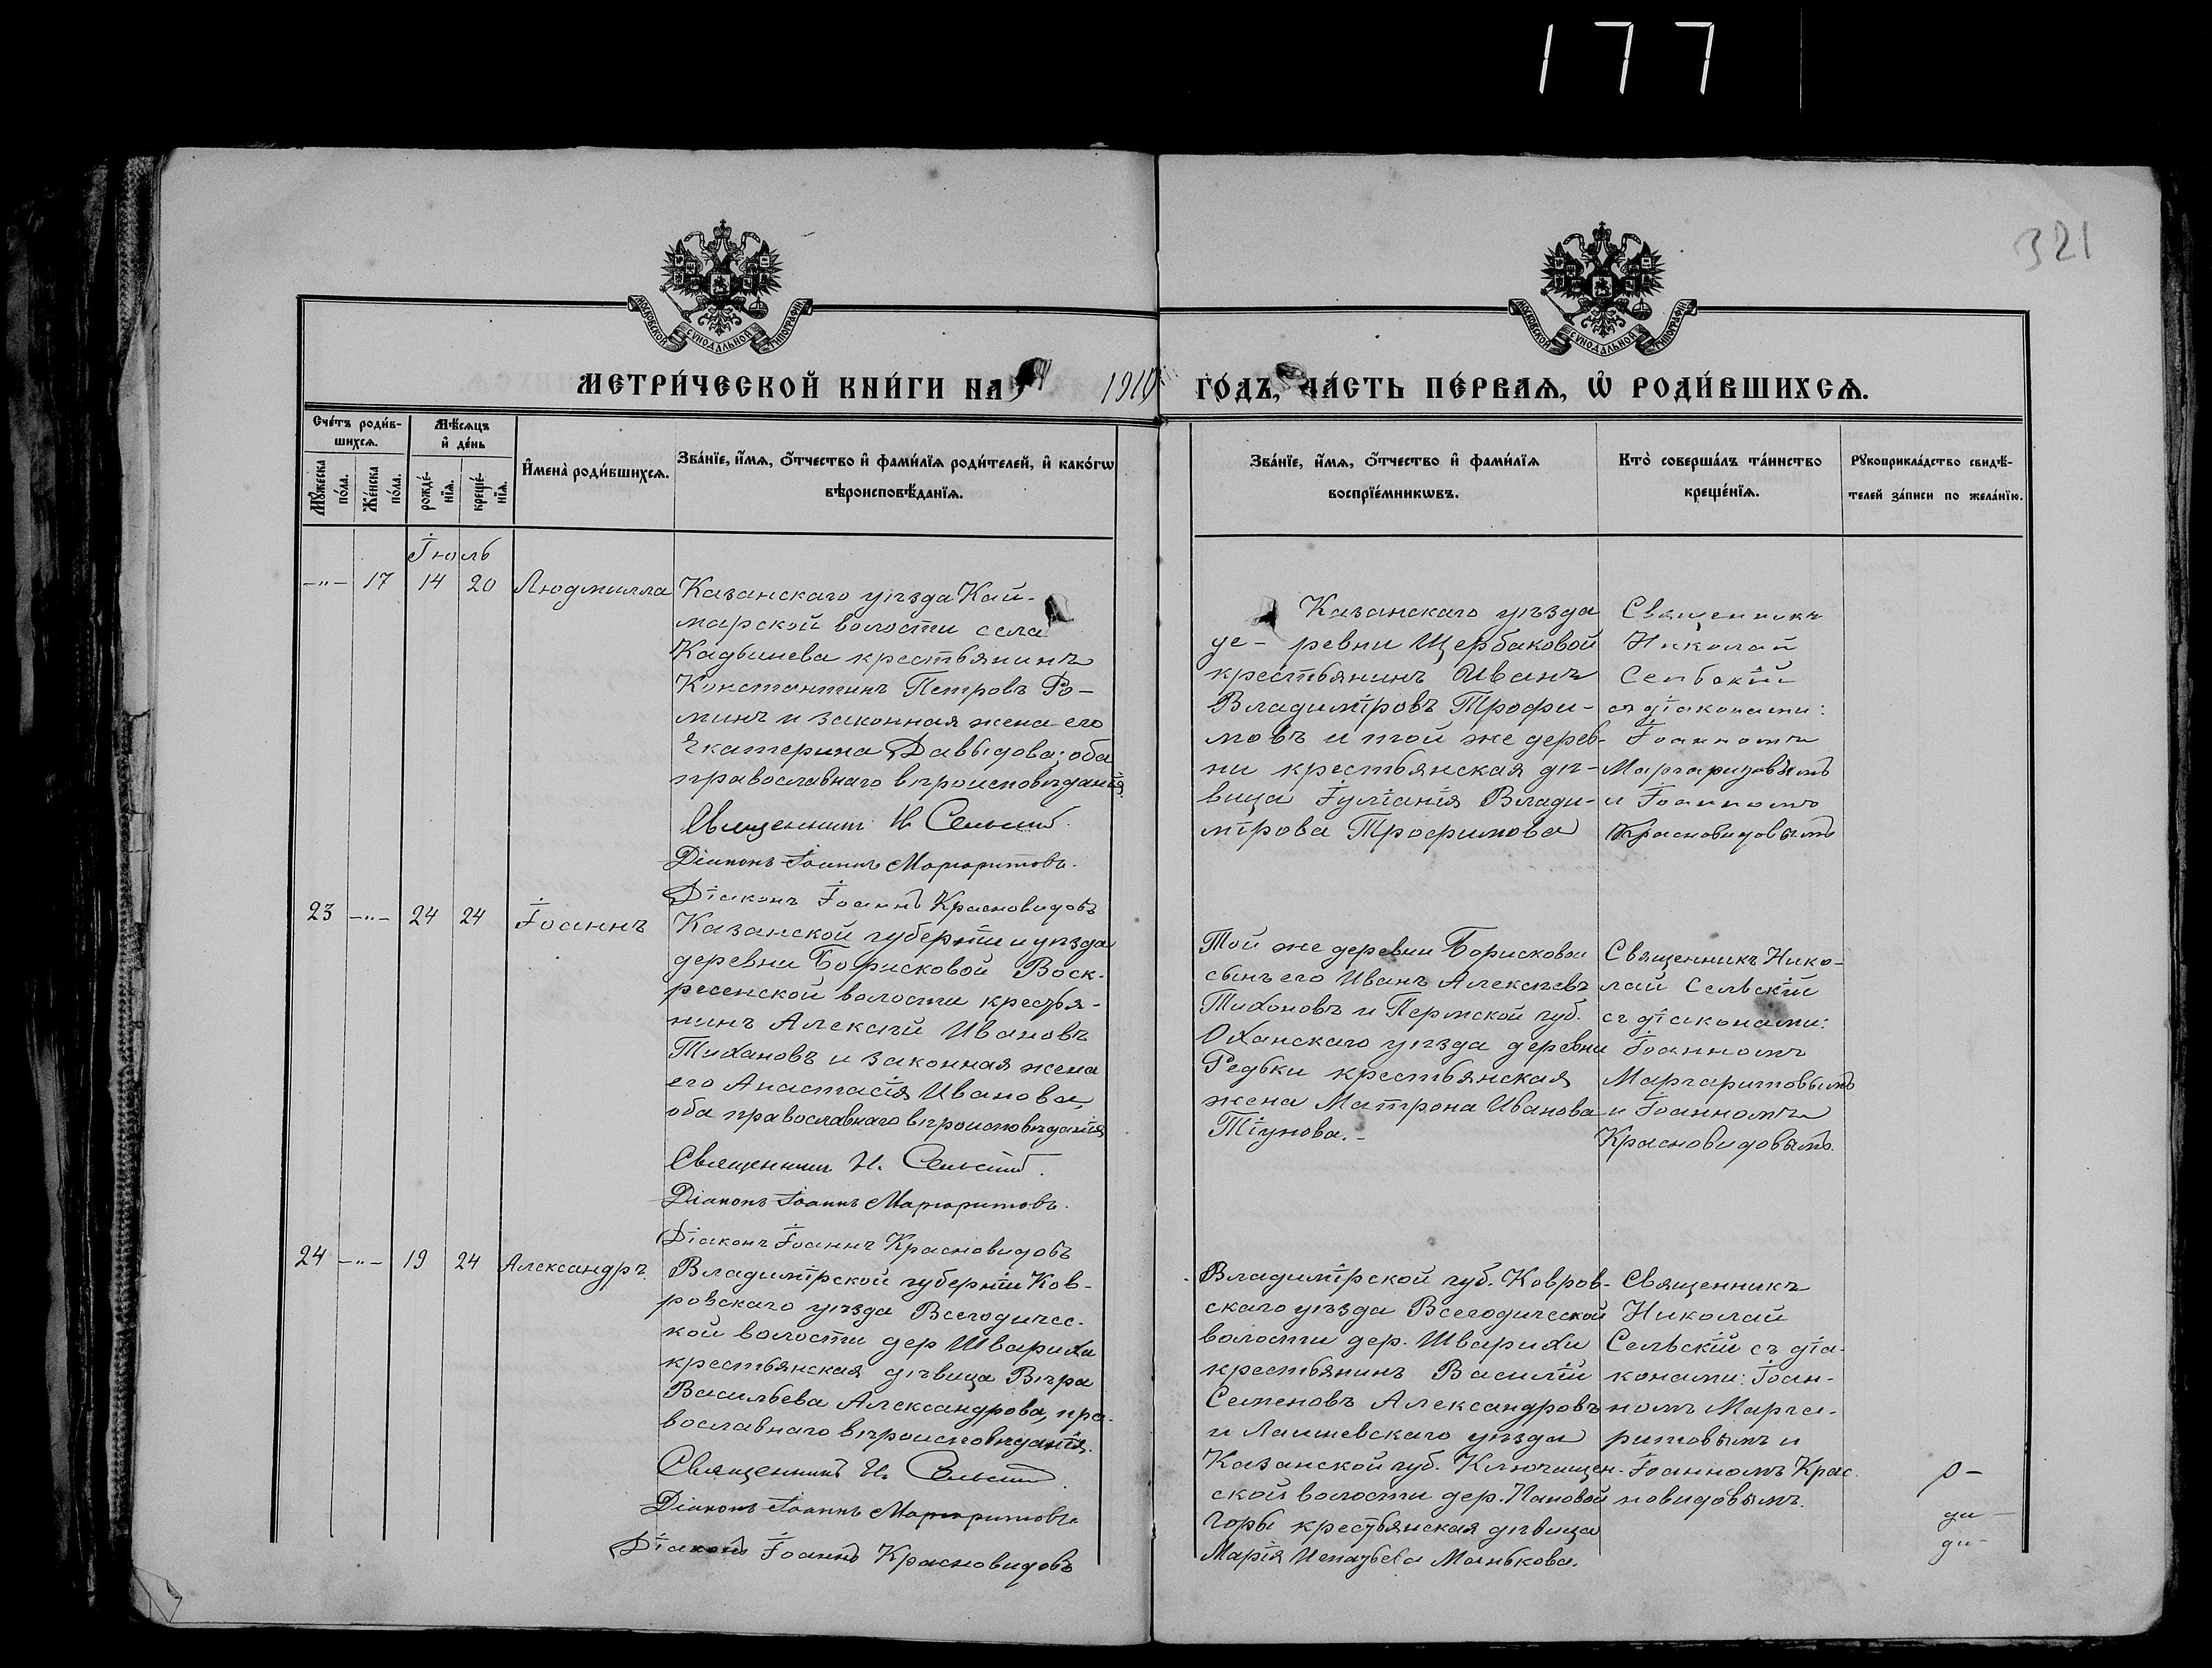 177
321
МОСКОВСКОЙ СѴНОДАЛЬНОЙ ТИПОГРАФІИ
МОСКОВСКОЙ СѴНОДАЛЬНОЙ ТИПОГРАФІИ
МЕТРИ́ЧЕСКОЙ КНИ́ГИ НА 1910 ГО́ДЪ, ЧА́СТЬ ПЕ́РВАѦ, Ѡ҆ РОДИ́ВШИХСѦ.
Сче́тъ роди́в-
шихсѧ.
Мꙋ́жеска
по́ла.
Же́нска
по́ла.
Мѣ́сѧцъ
и҆ де́нь
рожде́-
нїѧ.
креще́-
нїѧ.
И҆мена̀ роди́вшихсѧ.
Зва́нїе, и҆́мѧ, ѻ҆́тчество и҆ фами́лїѧ роди́телей, и҆ како́гѡ
вѣроисповѣ́данїѧ.
Зва́нїе, и҆́мѧ, ѻ҆́тчество и҆ фами́лїѧ
воспрїе́мникѡвъ.
Кто̀ соверша́лъ та́инство
креще́нїѧ.
Рꙋкоприкла́дство свидѣ́-
телей за́писи по жела́нїю.
Іюль
-"- 17 14 20 Людмилла
Казанскаго уѣзда Кай-
марской волости села
Кадышева крестьянинъ
Константинъ Петровъ Ро-
минъ и законная жена его
Екатерина Давыдова; оба
православнаго вѣроисповѣданія.
Священникъ Н. Сельскій.
Діаконъ Іоаннъ Маргаритовъ.
Діаконъ Іоаннъ Красновидовъ
Казанскаго уѣзда
де- ревни Щербаковой
крестьянинъ Иванъ
Владиміровъ Трофи-
мовъ и той же дерев-
ни крестьянская дѣ-
вица Іуліанія Влади-
мірова Трофимова
Священникъ
Николай
Сельскій
съ діаконами:
Іоанномъ
Маргаритовымъ
и Іоанномъ
Красновидовымъ
23 -"- 24 24 Іоаннъ
Казанской губерніи и уѣзда
деревни Борисковой Воск-
ресенской волости крестья-
нинъ Алексѣй Ивановъ
Тихановъ и законная жена
его Анастасія Иванова,
оба православнаго вѣроисповѣданія
Священникъ Н. Сельскій.
Діаконъ Іоаннъ Маргаритовъ.
Діаконъ Іоаннъ Красновидовъ
Той же деревни Борисковой
сынъ его Иванъ Алексѣевъ
Тихоновъ и Пермской губ.
Оханскаго уѣзда деревни
Редьки крестьянская
жена Матрона Иванова
Тіунова.-
Священникъ Нико-
лай Сельскій
съ діаконами:
Іоанномъ
Маргаритовымъ
и Іоанномъ
Красновидовымъ.
24 -"- 19 24 Александръ.
Владимірской губерніи Ков-
ровскаго уѣзда Всегодичес-
кой волости дер Швариха
крестьянская дѣвица Вѣра
Васильева Александрова, пра-
вославнаго вѣроисповѣданія.
Священникъ Н. Сельскій
Діаконъ Іоаннъ Маргаритовъ
Діаконъ Іоаннъ Красновидовъ
Владимірской губ. Ковров-
скаго уѣзда Всегодической
волости дер. Шварихи
крестьянинъ Василій
Семеновъ Александровъ
и Лаишевскаго уѣзда
Казанской губ. Ключищен-
ской волости дер. Пановой
Горы крестьянская дѣвица
Марія Манькова.
Священникъ
Николай
Сельскій съ діа-
конами: Іоан-
номъ Марга-
ритовымъ и
Іоанномъ Крас-
новидовымъ.